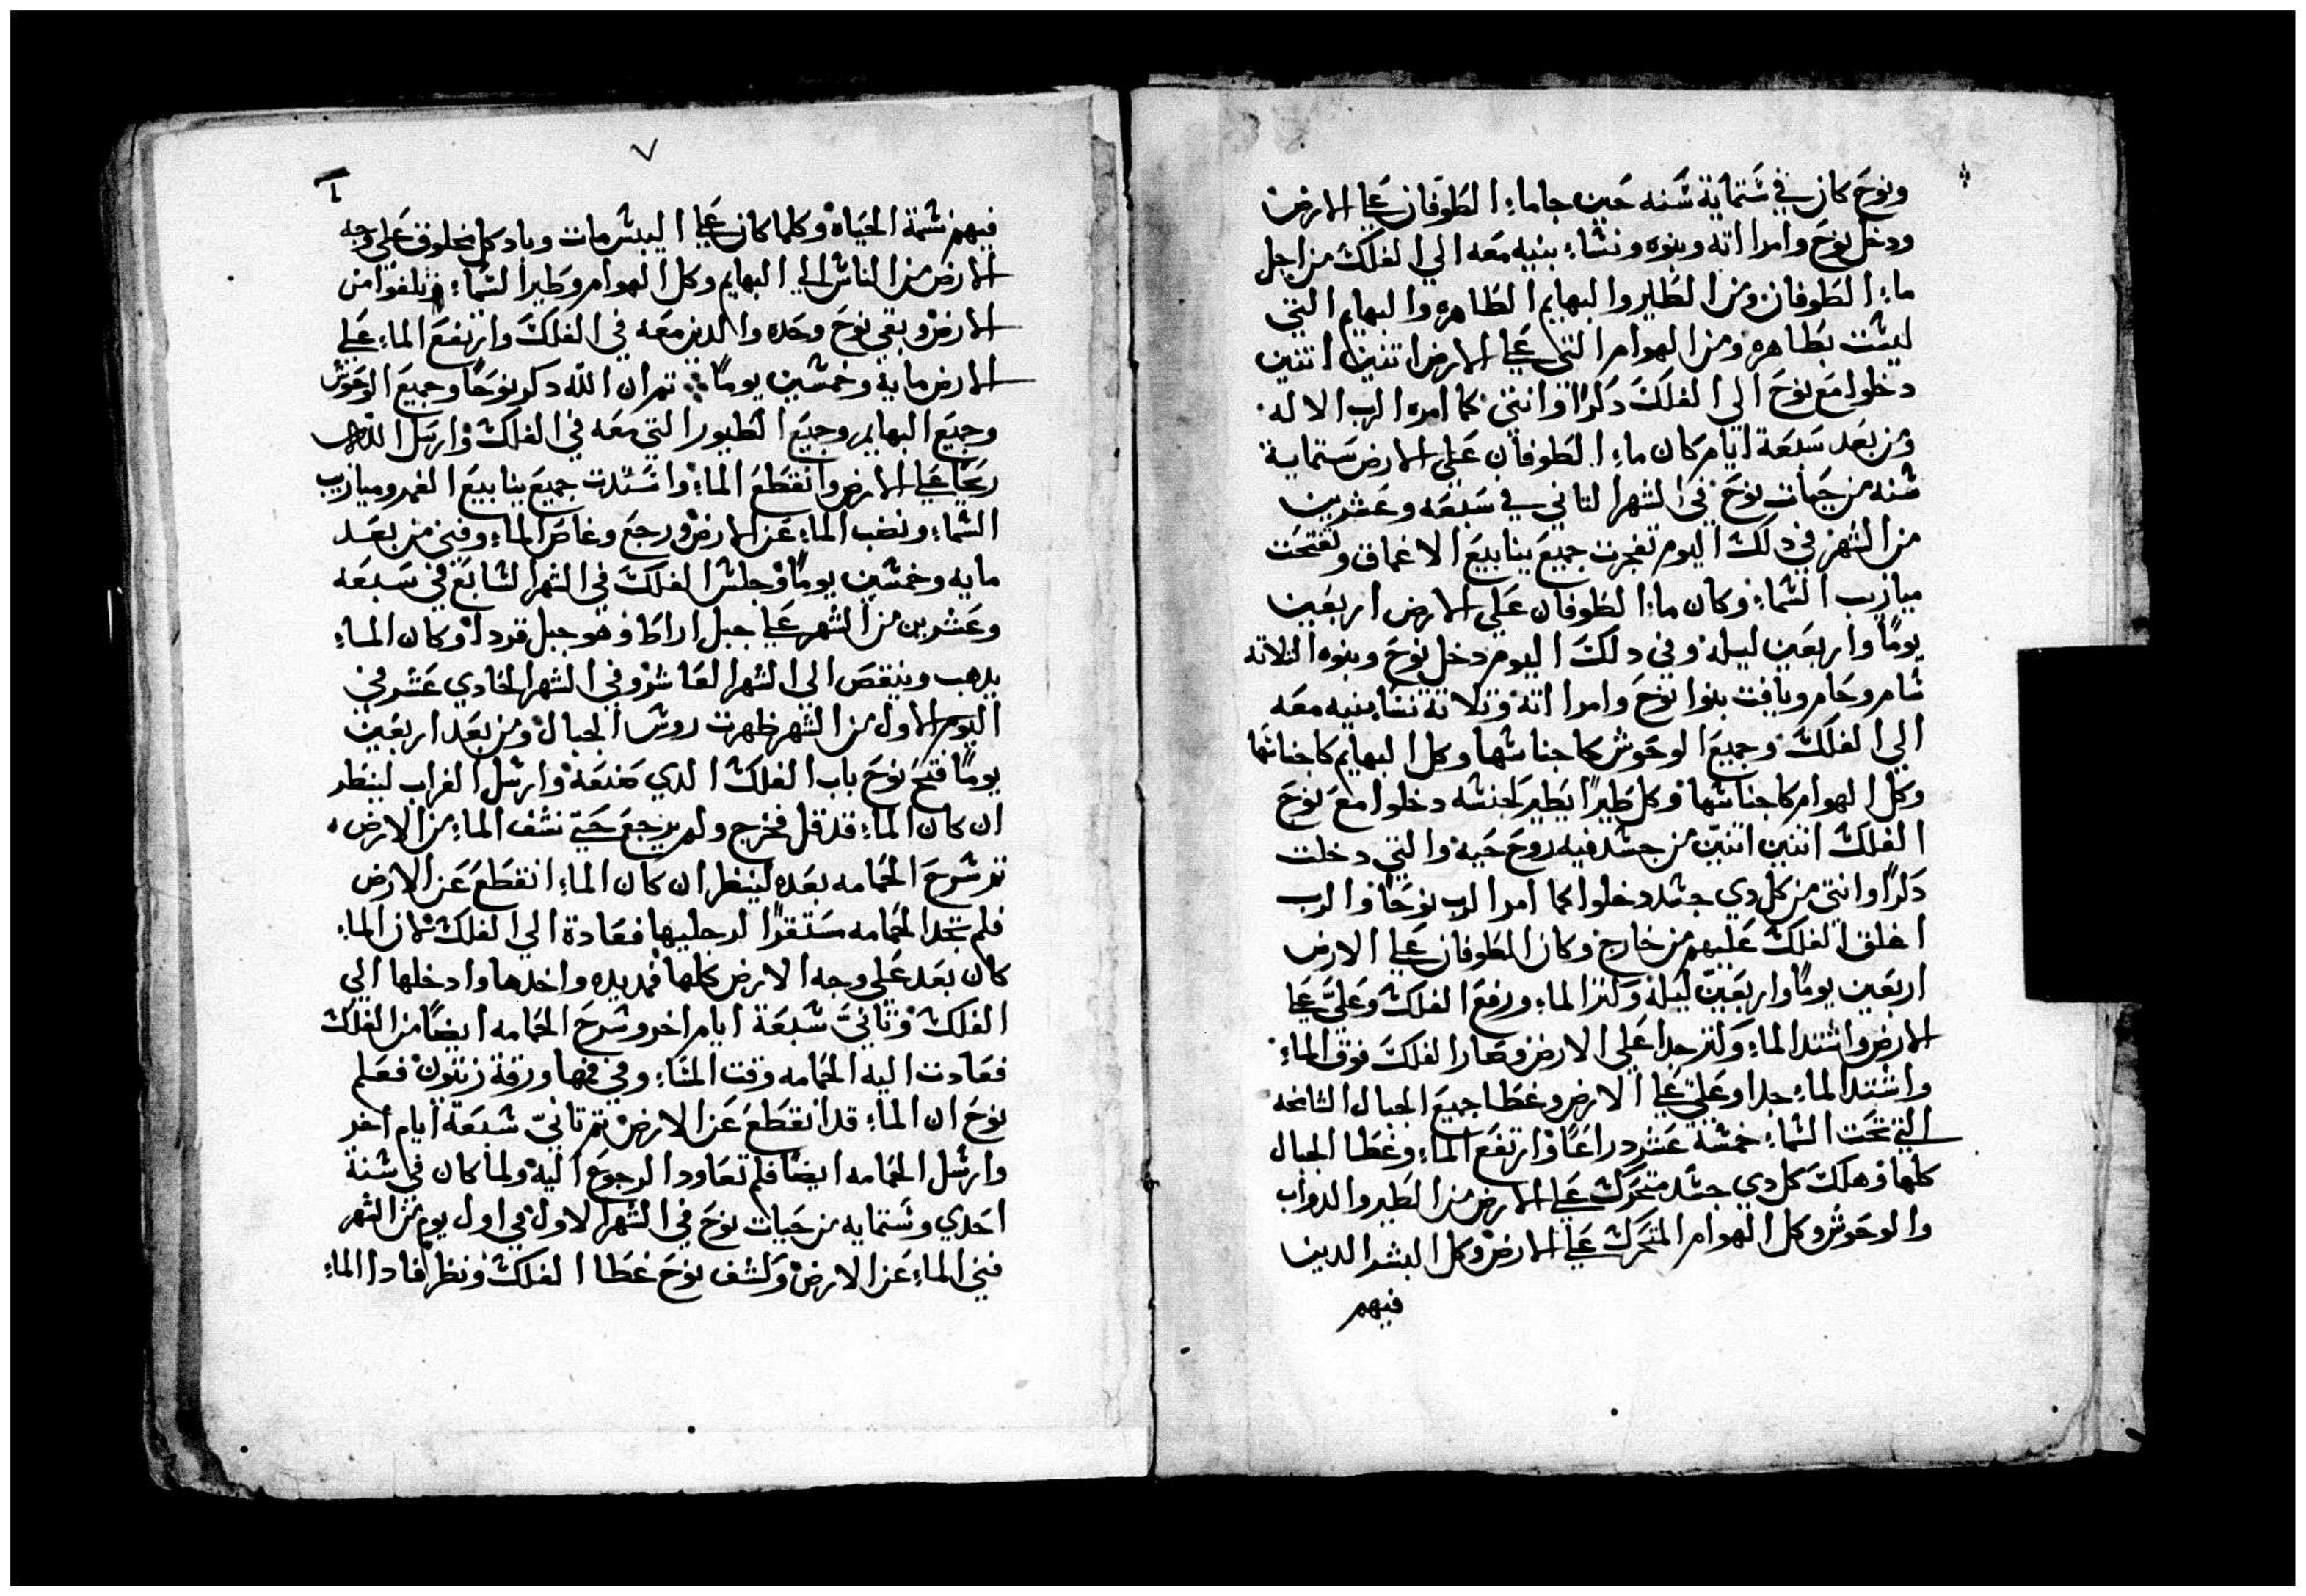 ونوح كان في ستماية سنه حين جا ماء الطوفان علي الارض
ودخل نوح وامراته وبنوه ونساء بنيه معه الي الفلك من اجل
ماء الطوفان ومن الطير والبهايم الطاهره والبهايم التي
ليست بطاهره ومن الهوام التي علي الارض اتنين اتنين
دخلوا مع نوح الي الفلك دكرا وانتي كما امره الرب الاله
ومن بعد سبعة ايام كان ماء الطوفان علي الارض ستماية
سنه من حيات نوح في الشهر التاني في سبعه وعشرين
من الشهر في دلك اليوم تفجرت جميع ينابيع الاغماق وتفتحت
ميازيب السماء وكان ماء الطوفان علي الارض اربعين
يوما واربعين ليله وفي دلك اليوم دخل نوح وبنوه التلاته
سام وحام ويافت بنوا نوح وامراته وتلاتة نسا بنيه معه
الي الفلك وجميع الوحوش كاجناسها وكل البهايم كاجناسها
وكل الهوام كاجناسها وكل طيرا يطير لجنسه دخلوا مع نوح
الفلك اتنين اتنين من جسد فيه روح حيه والتي دخلت
دكرا وانتي من كل دي جسد دخلوا كما امر الرب نوحا والرب
اغلق الفلك عليهم من خارج وكان الطوفان علي الارض
اربعين يوما واربعين ليله وكتر الماء ورفع الفلك وعلي علي
الارض واشتد الماء وكتر جدا علي الارض وصار الفلك فوق الماء
واشتد الماء جدا وعلي علي الارض وغطا جميع الجبال الشامخه
التي تحت السماء خمسة عشر دراعا وارتفع الماء وغطا الجبال
كلها وهلك كل دي جسد متحرك علي الارض من الطير والدواب
والوحوش وكل الهوام المتحرك علي الارض وكل البشر الدين
فيهم
٧
فيهم نسمة الحياه وكلما كان علي اليبس مات وباد كل مخلوق علي وجه
الارض من الناس الي البهايم وكل الهوام وطير السماء وتلفوا من
الارض وبقي نوح وحده والدين معه في الفلك وارتفع الماء علي
الارض مايه وخمسين يوما تم ان الله دكر نوحا وجميع الوحوش
وجميع البهايم وجميع الطيور التي معه في الفلك وارسل الله
ريحا علي الارض وانقطع الماء واستدت جميع ينابيع الغمر وميازيب
السماء ونضب الماء عن الارض ورجع وغاص الماء وفني من بعد
مايه وخمسين يوما وجلس الفلك في الشهر السابع في سبعه
وعشرين من الشهر علي جبل اراطا وهو جبل قردا وكان الماء
يدهب وينقص الي الشهر العاشر وفي الشهر الحادي عشر في
اليوم الاول من الشهر ظهرت روس الجبال ومن بعد اربعين
يوما فتح نوح باب الفلك الدي صنعه وارسل الغراب لينظر
ان كان الماء قد قل فخرج ولم يرجع حتي نشف الماء من الارض
تم سرح الحمامه بعده لينظر ان كان الماء انقطع عن الارض
فلم تجد الحمامه مستقرا لرجليها فعادة الي الفلك لان الماء
كان بعد علي وجه الارض كلها فمد يده واخدها وادخلها الي
الفلك وتاني سبعة ايام اخر وسرح الحمامه ايضا من الفلك
فعادت اليه الحمامه وقت المساء وفي فمها ورقة زيتون فعلم
نوح ان الماء قد انقطع عن الارض تم تاني سبعة ايام اخر
وارسل الحمامه ايضا فلم تعاود الرجوع اليه ولما كان في سنة
احدي وستمايه من حيات نوح في الشهر الاول في اول يوم من الشهر
فني الماء عن الارض وكشف نوح غطا الفلك ونظر فادا الماء